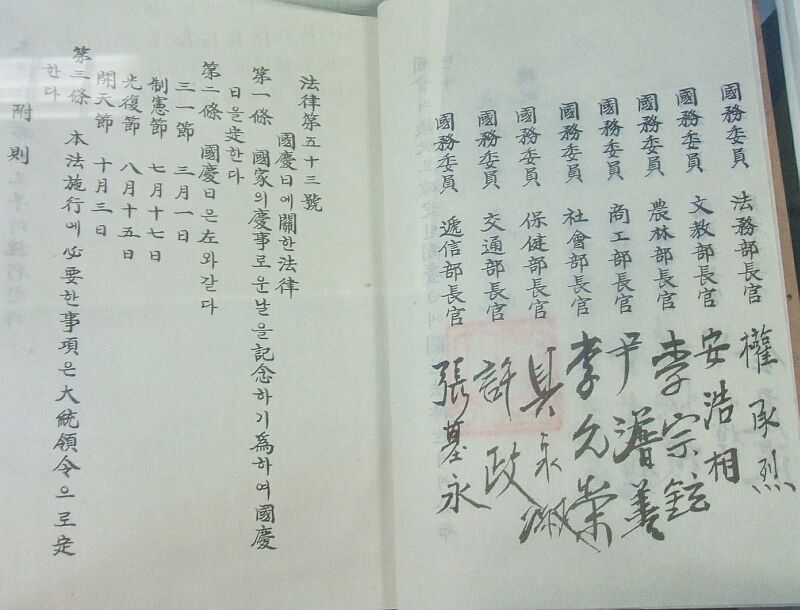 國務委員 法務部長官 權承烈
國務委員 文敎部長官 安浩相
國務委員 農林部長官 李宗鉉
國務委員 商工部長官 尹潽善
國務委員 社會部長官 李允榮
國務委員 保健部長官 具永淑
國務委員 交通部長官 許政
國務委員 遞信部長官 張基永
法律第五十三號
國慶日에關한法律
第一條 國家의慶事로운날을記念하기爲하여國慶
日을定한다
第二條 國慶日은左와같다
三一節 三月一日
制憲節 七月十七日
光復節 八月十五日
開天節 十月三日
第三條 本法施行에必要한事項은大統領令으로定
한다
附則